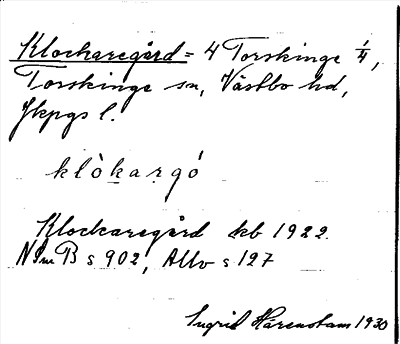 Klockaregård = 4 Torskinge 1/4,
Torskinge sn, Västbo hd,
Jkpgs l.
klòkargó
Klockaregård kb 1922.
NSmB s 902, Allv s 127
Ingrid Härenstam 1930